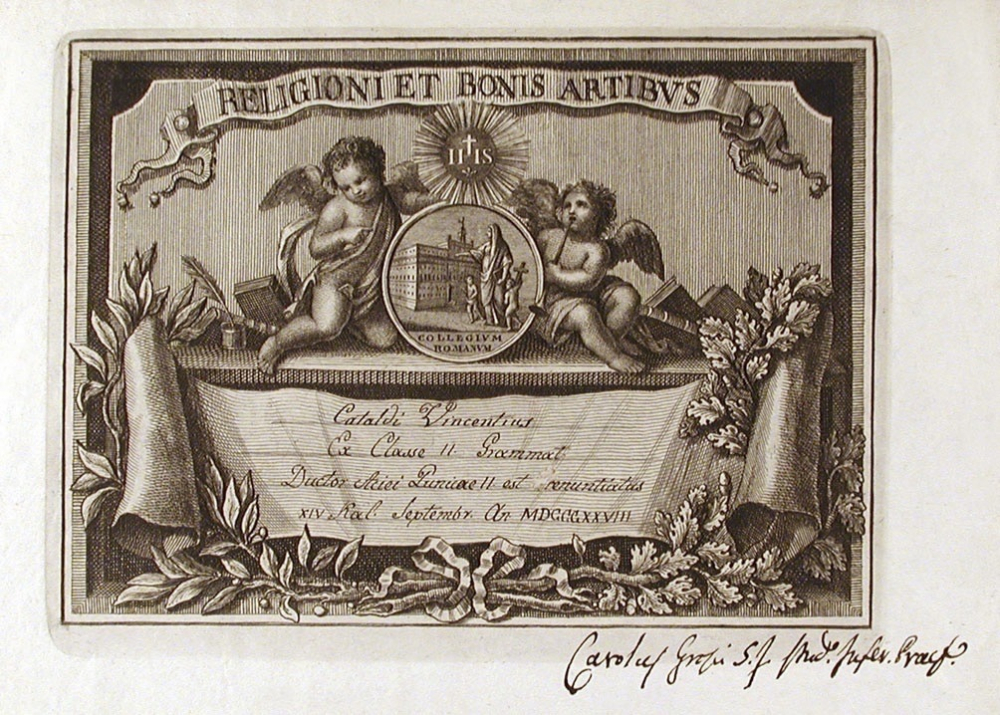 RELIGIONI ET BONIS ARTIBVS
IHS
COLLEGIVM
ROMANVM
Cataldi Vincentius
Ex Classe II Grammat
Ductor Aciei Punicae II est renuntiatus
XIV Kal Septembr An MDCCCXXVIII
Carolus Grossi S.J. Stud. Infer. Praef.